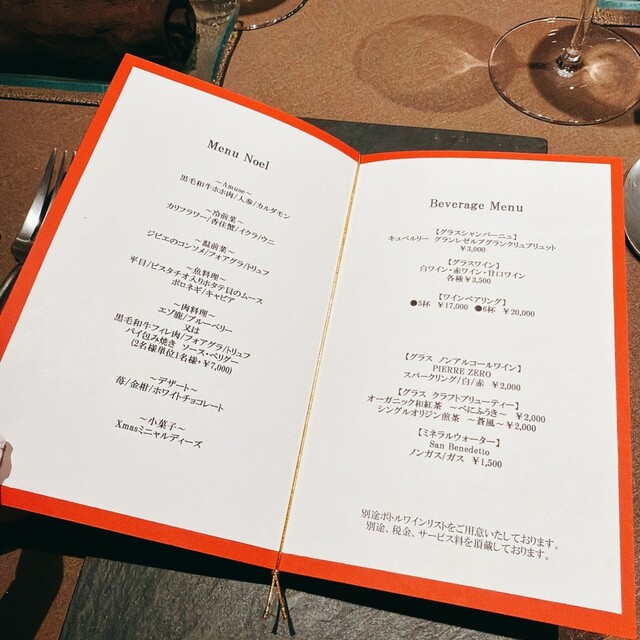 Menu Noel
～Amuse～
黒毛和牛ホホ肉/人参/カルダモン
～冷前菜～
カリフラワー/香住蟹/イクラ/ウニ
～温前菜～
ジビエのコンソメ/フォアグラ/トリュフ
～魚料理～
平目/ピスタチオ入りホタテ貝のムース
ボロネギ/キャビア
～肉料理～
エゾ鹿/ブルーベリー
又は
黒毛和牛フィレ肉/フォアグラ/トリュフ
パイ包み焼き ソース・ペリグー
(2名様単位1名様+￥7,000)
～デザート～
苺/金柑/ホワイトチョコレート
～小菓子～
Xmasミニャルディーズ
Beverage Menu
【グラスシャンパーニュ】
キュペルリー グランレゼルブグランクリュブリュット
￥3,000
【グラスワイン】
白ワイン・赤ワイン・甘口ワイン
各種￥3,500
【ワインペアリング】
●5杯 ￥17,000 ●6杯 ￥20,000
【グラス ノンアルコールワイン】
PIERRE ZERO
スパークリング/白/赤 ￥2,000
【グラス クラフトブリューティー】
オーガニック和紅茶 ～べにふうき～ ￥2,000
シングルオリジン煎茶 ～蒼風～￥2,000
【ミネラルウォーター】
San Benedetto
ノンガス/ガス ￥1,500
別途ボトルワインリストをご用意いたしております。
別途、税金、サービス料を頂戴しております。